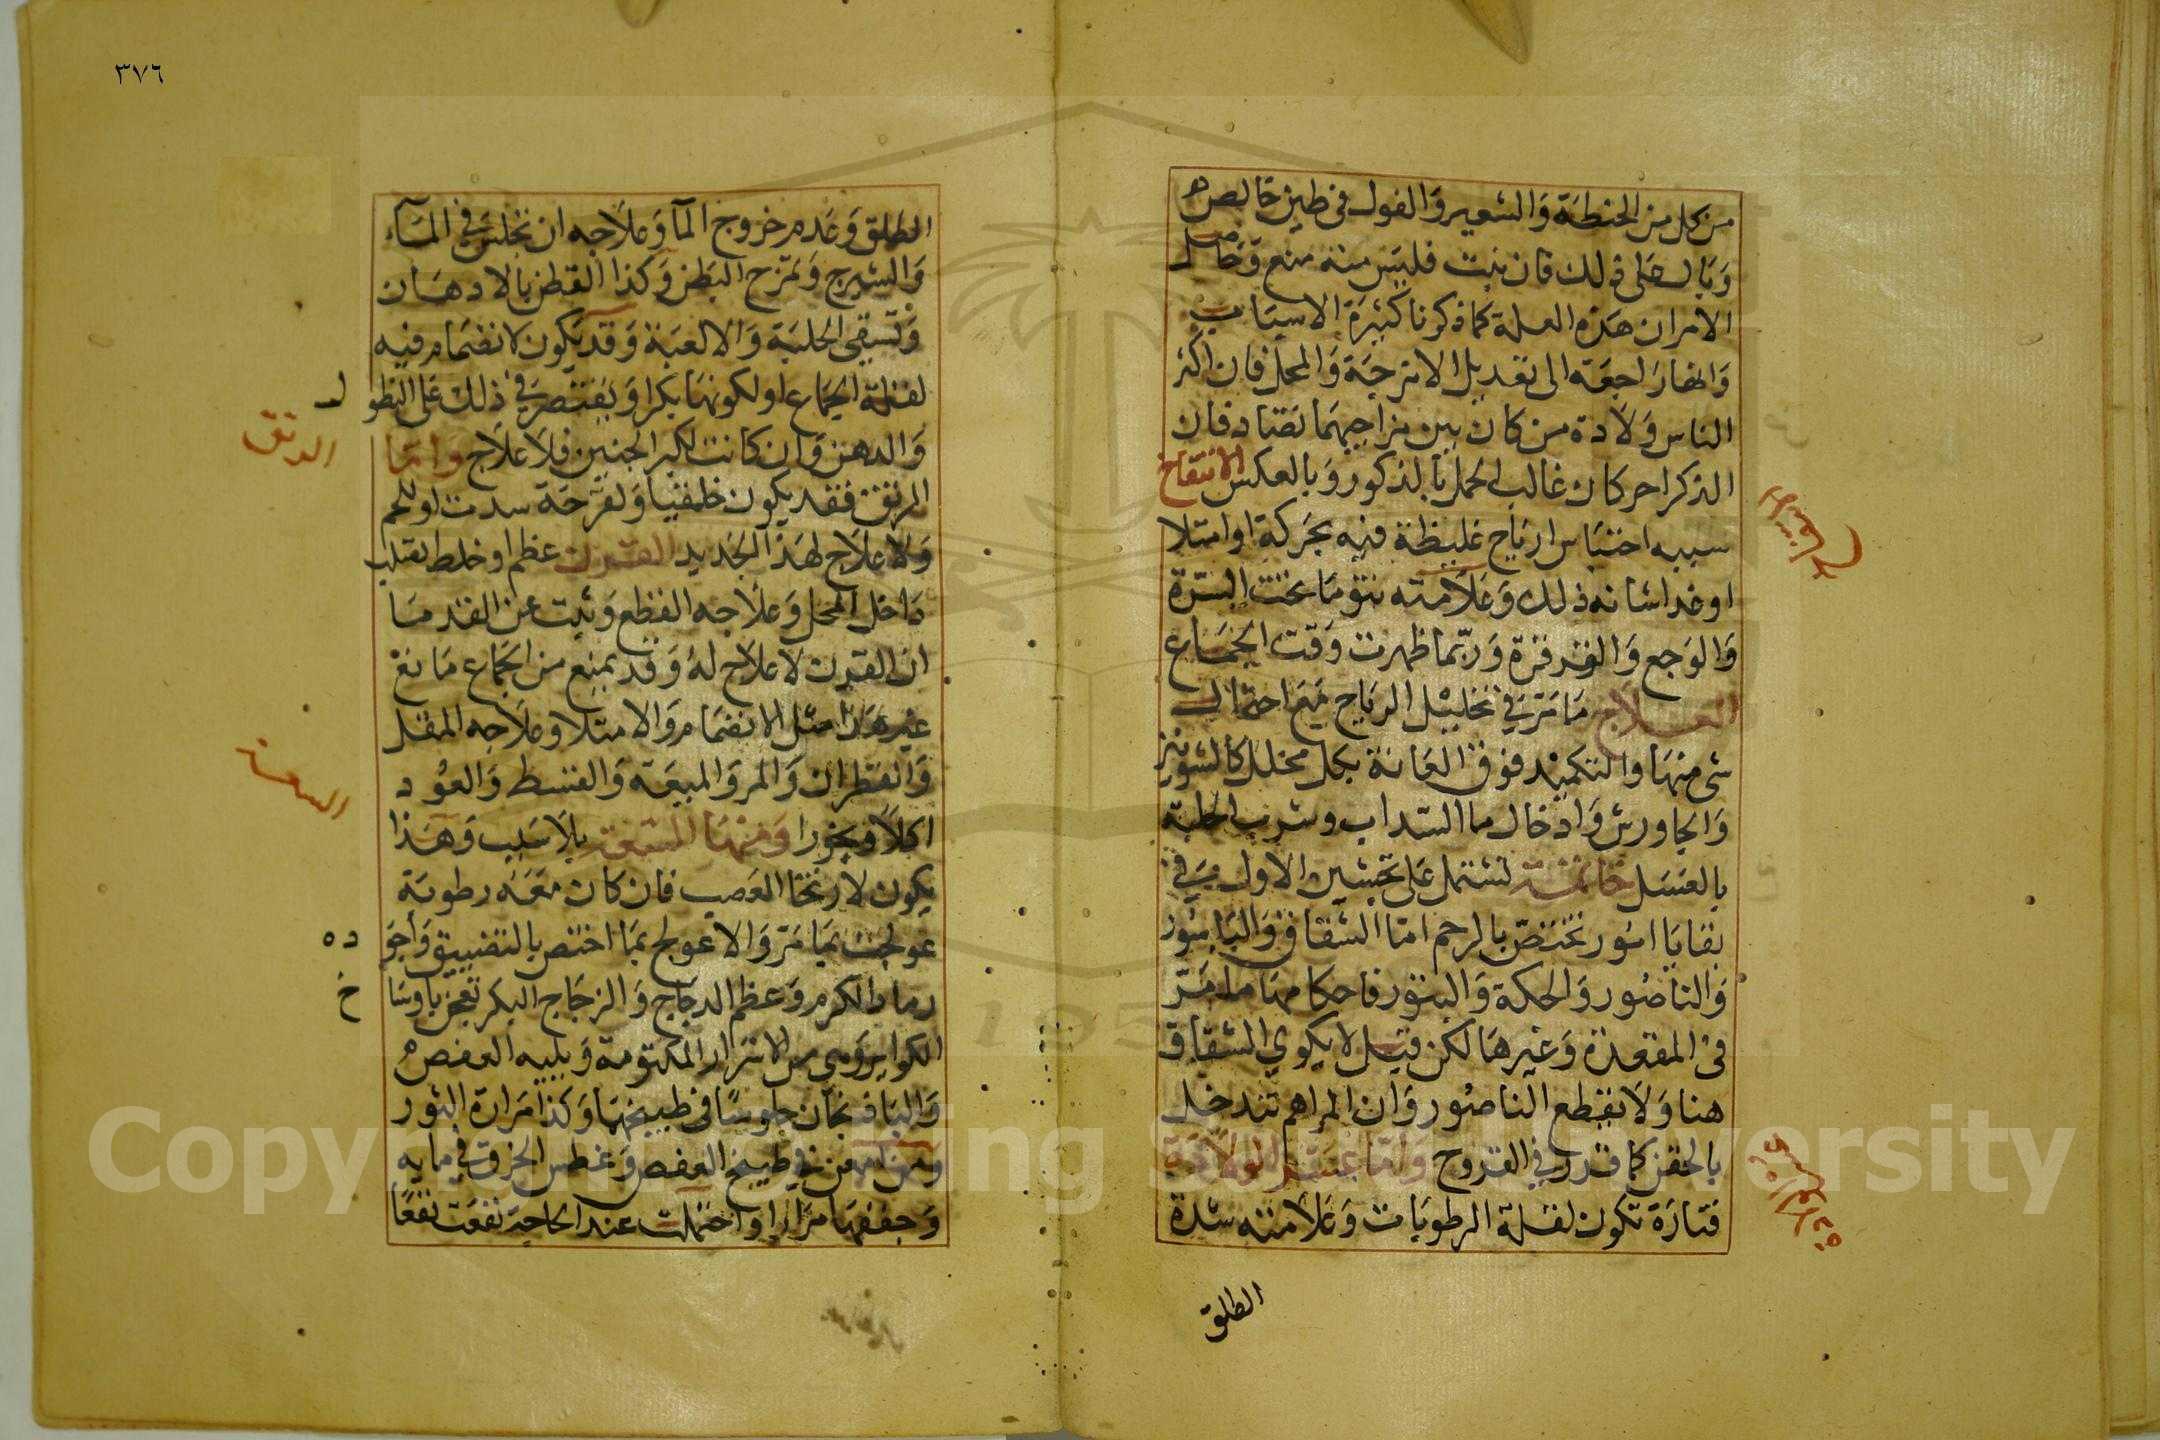 من كل من الحنطة والشعير والفول في طين خالص
وبال على ذلك فان نبت فليس منه منع وحاصل
الامر ان هذه العلة كما ذكرنا كثيرة الاسباب
وانها راجعة الى تعديل الامزجة والمحل فان اكثر
الناس ولادة من كان بين مزاجيهما تضاد فان
الذكر احر كان غالب الحمل بالذكور وبالعكس الانتفاخ
سببه احتباس ارياح غليظة فيه بحركة او امتلا
او غذا شانه ذلك وعلامته نتو ما تحت السرة
والوجع والقرقرة وربما ظهرت وقت الجماع
العلاج ما مر في تحليل الرياح ثم احتمال
شي منها والتكميد فوق العانة بكل محلل كالشونيز
والجاورش وادخال ما السداب وشرب الحلبة
بالعسل خاتمة تشتمل على بحثين الاول في
بقايا امور تختص بالرحم اما الشقاق والباسور
والناصور والحكة والبثور فاحكامها ما مر
في المقعدة وغيرها لكن قيل لا يكوي الشقاق
هنا ولا يقطع الناصور وان المراهم تدخل
بالحقن كما قدر في القروح واما عسر الولادة
فتارة تكون لقلة الرطوبات وعلامته شدة
الطلق
٣٧٦
الطلق وعدم خروج الما وعلاجه ان تجلس في الماء
والشيرج وتمرخ البطن وكذا القطن بالادهان
وتسقى الحلبة والالعبة وقد يكون لانضمام فيه
لقلة الجماع او لكونها بكرا ويقتصر في ذلك على النطول
والدهن وان كانت لكبر الجنين فلا علاج واما
الرتق فقد يكون خلقيا ولقرحة سدت او للحم
ولا علاج لهذا الجديد القرن عظم او خلط تقلب
داخل المحل وعلاجه القطع وثبت عن القدما
ان القرن لا علاج له وقد يمنع من الجماع مانع
غير هذا مثل الانضمام والامتلا وعلاجه المقل
والقطران والمر والميعة والقسط والعود
اكلا وبخورا ومنها السعة بلا سبب وهذا
يكون لارتخا العصب فان كان معه رطوبة
عولجت بما مر والا عولج بما اختص بالتضييق وأجوده
رماد الكرم وعظم الدجاج والزجاج البكر تعجن باوساخ
الكواير وهي من الاسرار المكتومة ويليه العفص
والباذنجان جلوسا في طبيخها وكذا مرارة الثور
ومن في طبيخ العفص وغطس الخرق في مايه
وجففها مرارا واحتملت عند الحاجة نفعت نفعا
الرتق
السعة